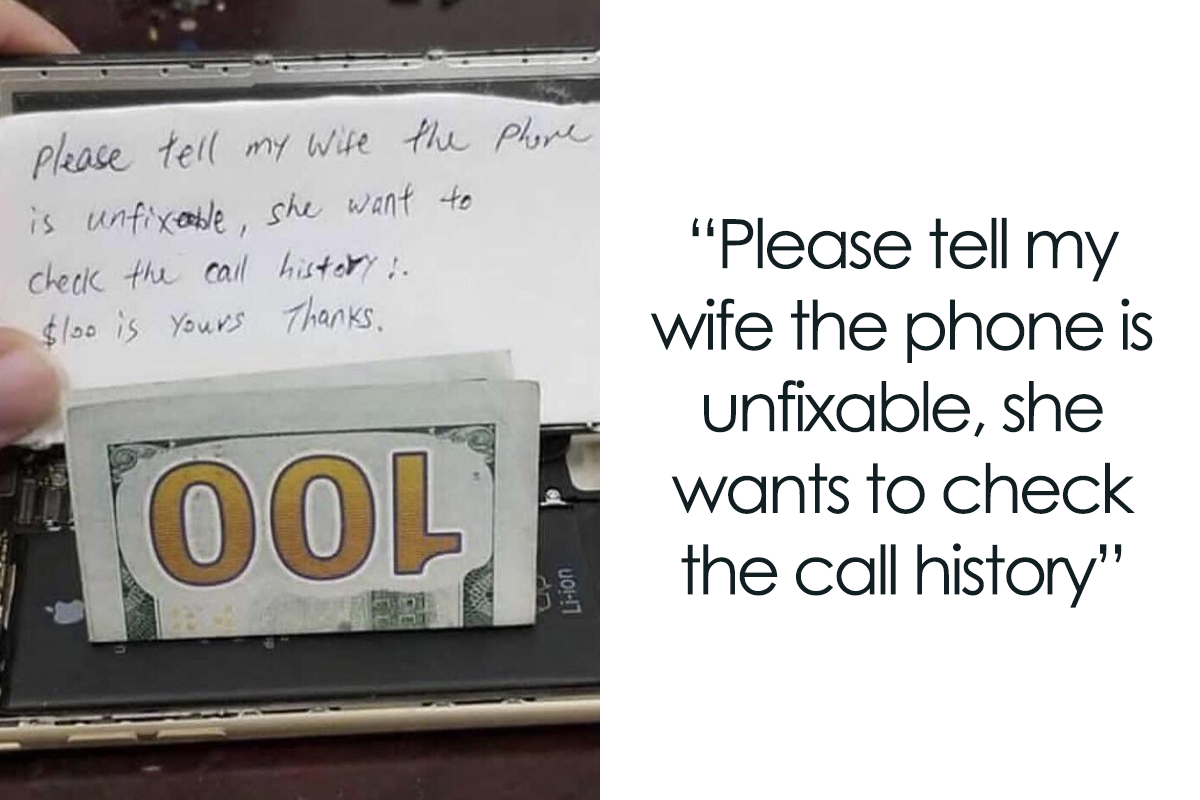 Please tell my wife the phone
is unfixable, she want to
check the call history!.
$100 is yours Thanks.
100
Li-ion
“Please tell my
wife the phone is
unfixable, she
wants to check
the call history”